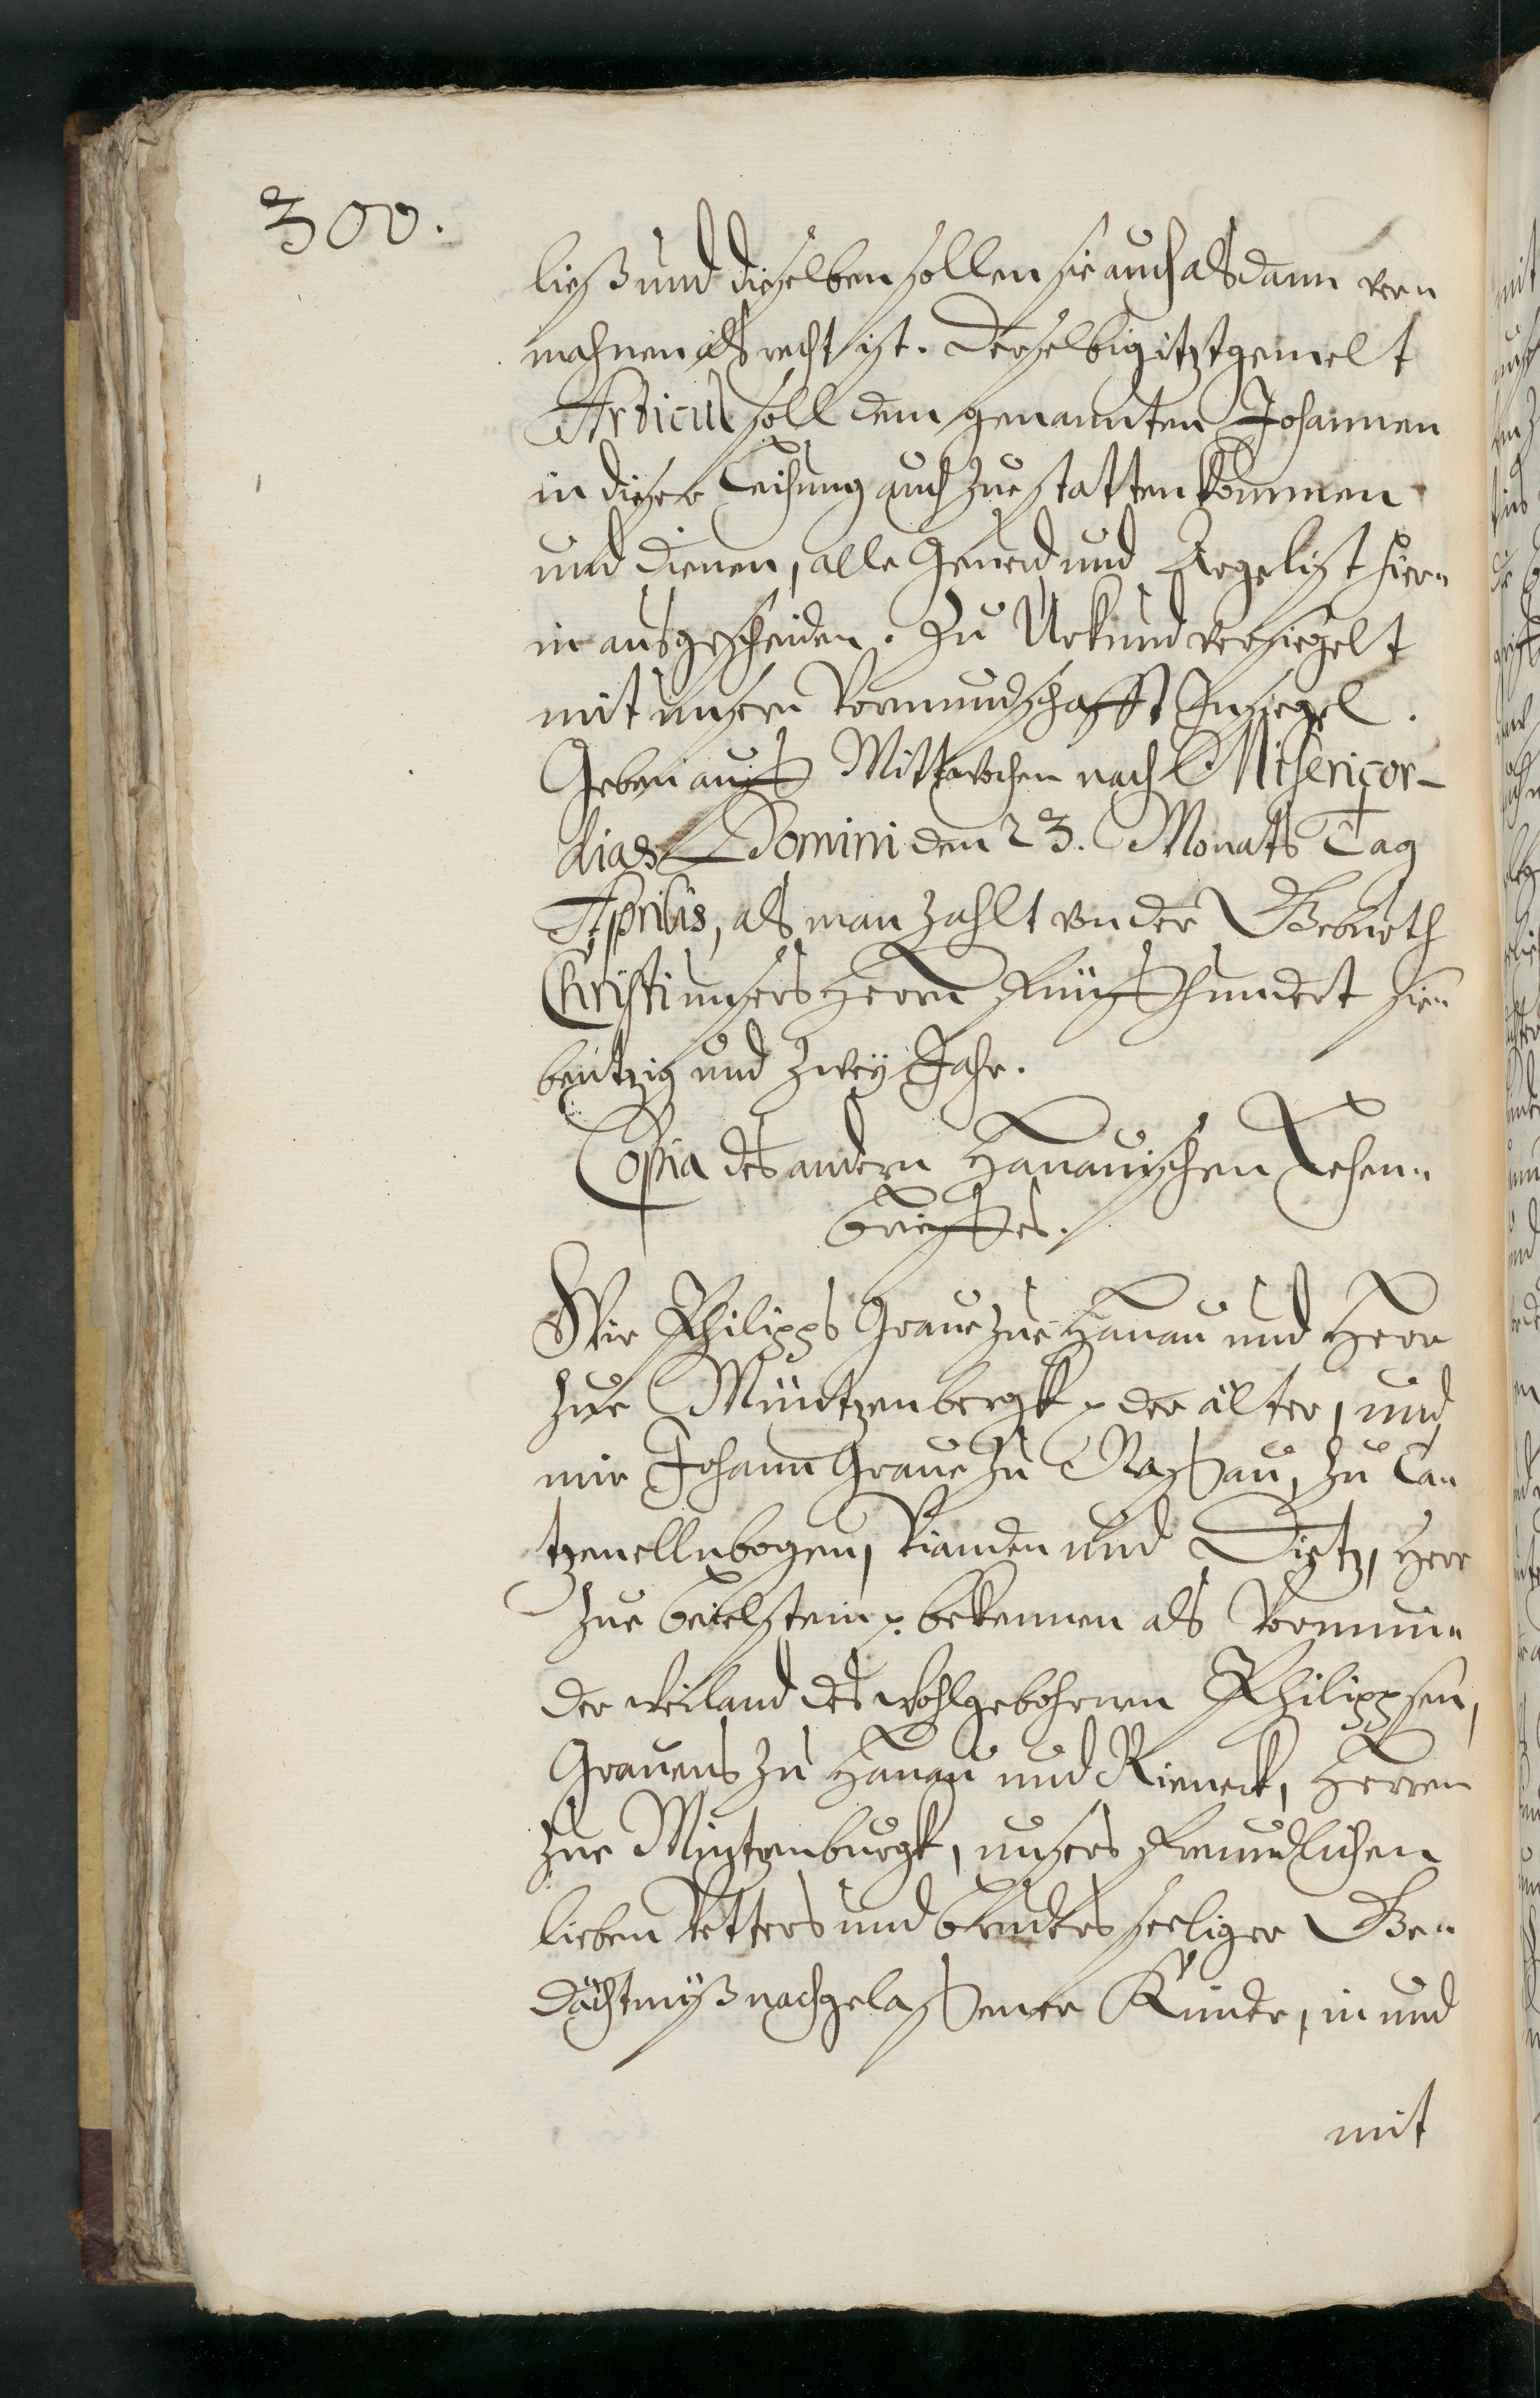 300.
ließ und dieselben sollen sie auch alsdann ver„
mahnen als recht ist. Derselbig itztgemelt
Articul soll dem genannten Johannen
in dieser Leihung auch zue statten kommen
und dienen, alle Geuerd und Argelist hier„
in ausgescheiden. Zu Urkund versiegelt
mit unserm Vormundschafft Insiegel.
Geben auff Mittwochen nach Misericor-
dias Domini den 23. Monats Tag
Aprilis, als man zahlt von der Geburth
Christi unsers Herrn Fünffhundert sie„
bentzig und zwey Jahr.
Copia des andern Hanauischen Lehen„
brieffes.
Wir Philipps Graue zue Hanau und Herr
zue Müntzenbergk der älter, und
wir Johann Graue zu Nassau, zu Ca„
tzenellnbogen, Vianden und Dietz, Herr
zue Beielstein bekennen als Vormün„
der weiland des wohlgebohrnen Philippsen,
Grauens zu Hanau und Rieneck, Herren
zue Mintzenburgk, unsers freundlichen
lieben Vetters und Bruders seeliger Ge„
dächtnüß nachgelassener Kinder, in und
mit